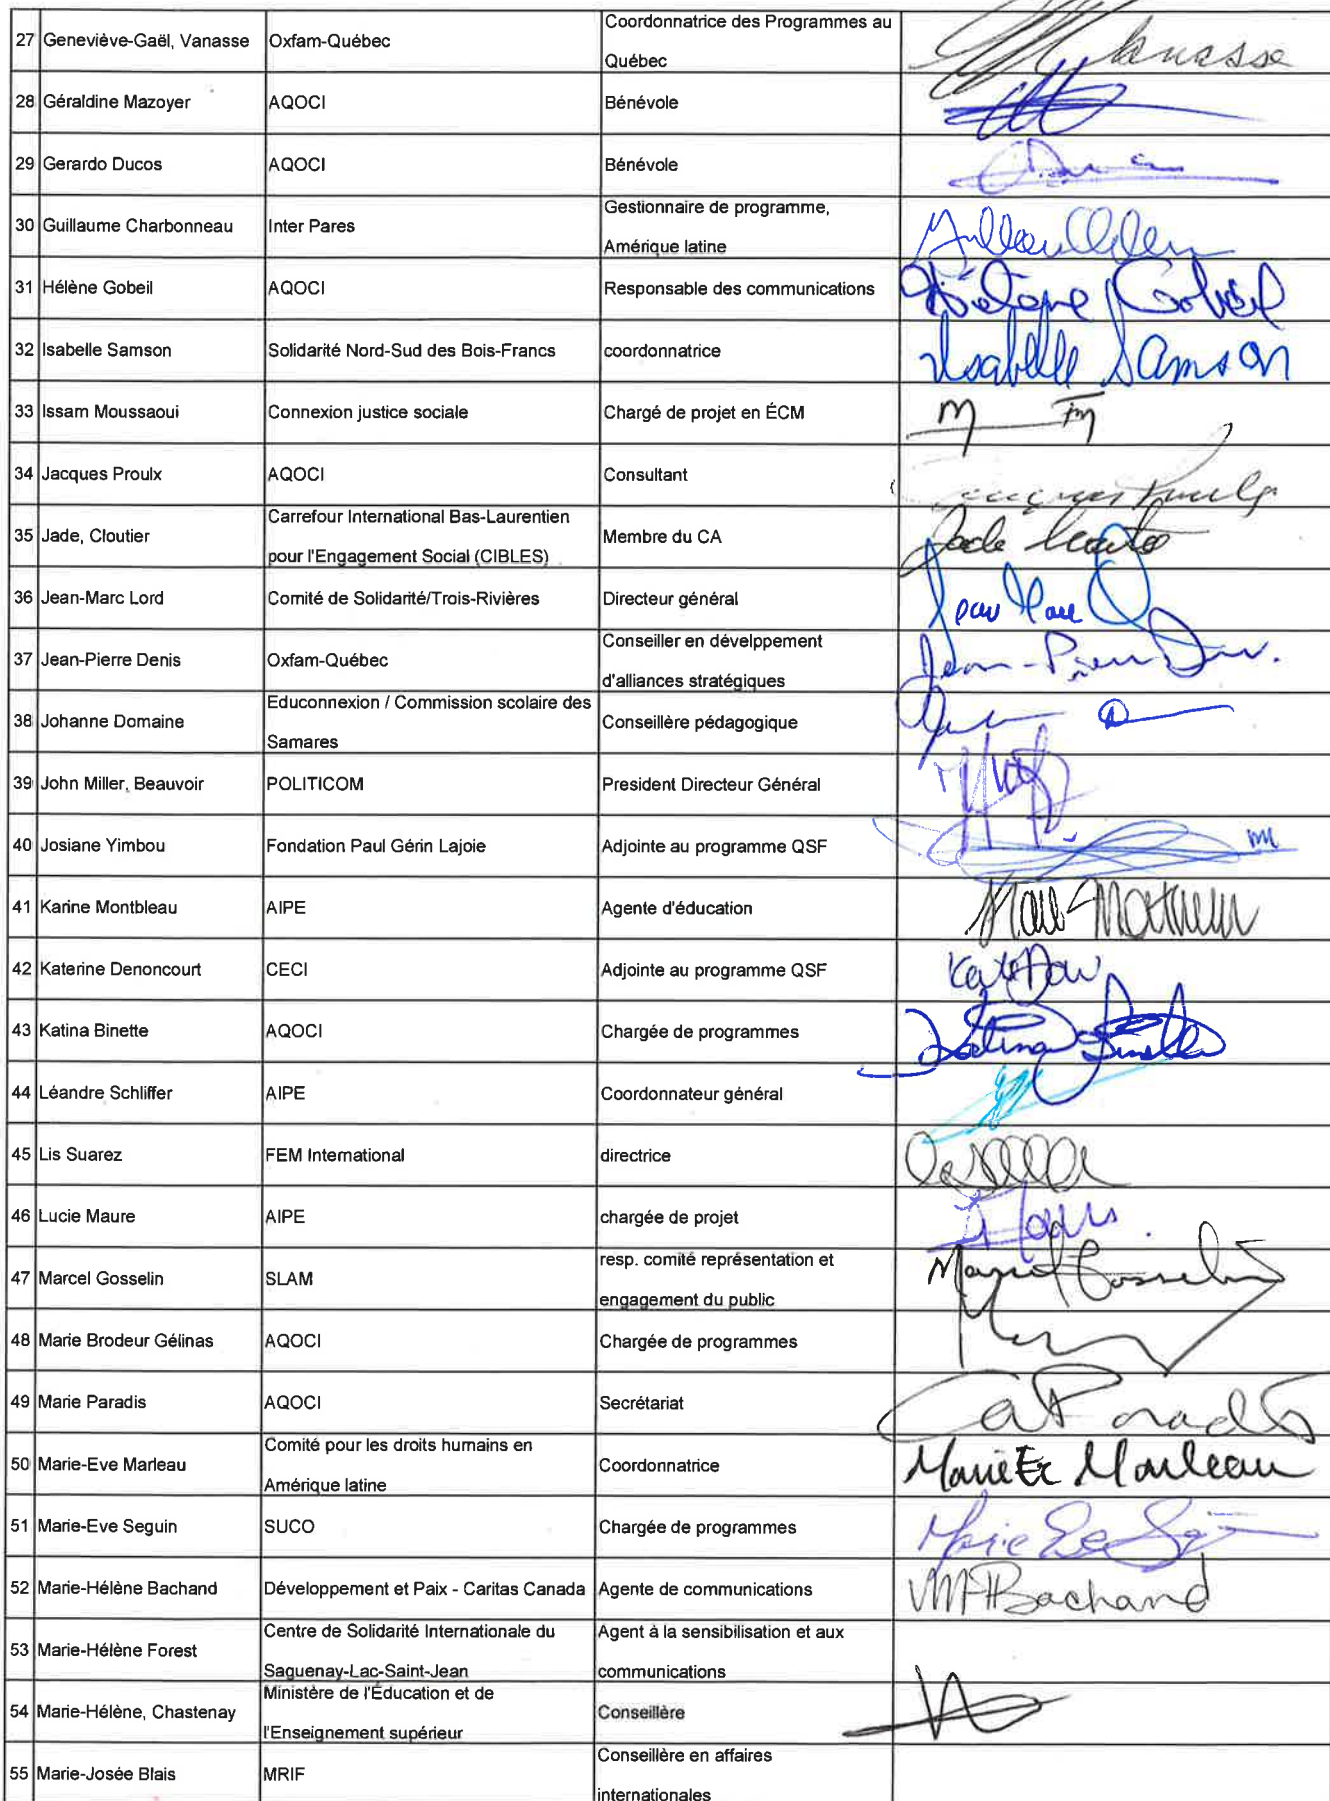 27 Geneviève-Gaël, Vanasse Oxfam-Québec Coordonnatrice des Programmes au
Québec Vanasse
28 Géraldine Mazoyer AQOCI Bénévole
29 Gerardo Ducos AQOCI Bénévole
30 Guillaume Charbonneau Inter Pares Gestionnaire de programme,
Amérique latine
31 Hélène Gobeil AQOCI Responsable des communications Hélène Gobeil
32 Isabelle Samson Solidarité Nord-Sud des Bois-Francs coordonnatrice Isabelle Samson
33 Issam Moussaoui Connexion justice sociale Chargé de projet en ÉCM
34 Jacques Proulx AQOCI Consultant Jacques Proulx
35 Jade, Cloutier Carrefour International Bas-Laurentien
pour l'Engagement Social (CIBLES) Membre du CA Jade Cloutier
36 Jean-Marc Lord Comité de Solidarité/Trois-Rivières Directeur général Jean Marc
37 Jean-Pierre Denis Oxfam-Québec Conseiller en dévelppement
d'alliances stratégiques Jean-Pierre Denis
38 Johanne Domaine Educonnexion / Commission scolaire des
Samares Conseillère pédagogique
39 John Miller, Beauvoir POLITICOM President Directeur Général
40 Josiane Yimbou Fondation Paul Gérin Lajoie Adjointe au programme QSF
41 Karine Montbleau AIPE Agente d'éducation
42 Katerine Denoncourt CECI Adjointe au programme QSF
43 Katina Binette AQOCI Chargée de programmes Katina Binette
44 Léandre Schliffer AIPE Coordonnateur général
45 Lis Suarez FEM International directrice
46 Lucie Maure AIPE chargée de projet
47 Marcel Gosselin SLAM resp. comité représentation et
engagement du public Marcel Gosselin
48 Marie Brodeur Gélinas AQOCI Chargée de programmes
49 Marie Paradis AQOCI Secrétariat Paradis
50 Marie-Eve Marleau Comité pour les droits humains en
Amérique latine Coordonnatrice Marie Eve Marleau
51 Marie-Eve Seguin SUCO Chargée de programmes Marie Eve
52 Marie-Hélène Bachand Développement et Paix - Caritas Canada Agente de communications MHBachand
53 Marie-Hélène Forest Centre de Solidarité Internationale du
Saguenay-Lac-Saint-Jean Agent à la sensibilisation et aux
communications
54 Marie-Hélène, Chastenay Ministère de l'Éducation et de
l'Enseignement supérieur Conseillère
55 Marie-Josée Blais MRIF Conseillère en affaires
internationales